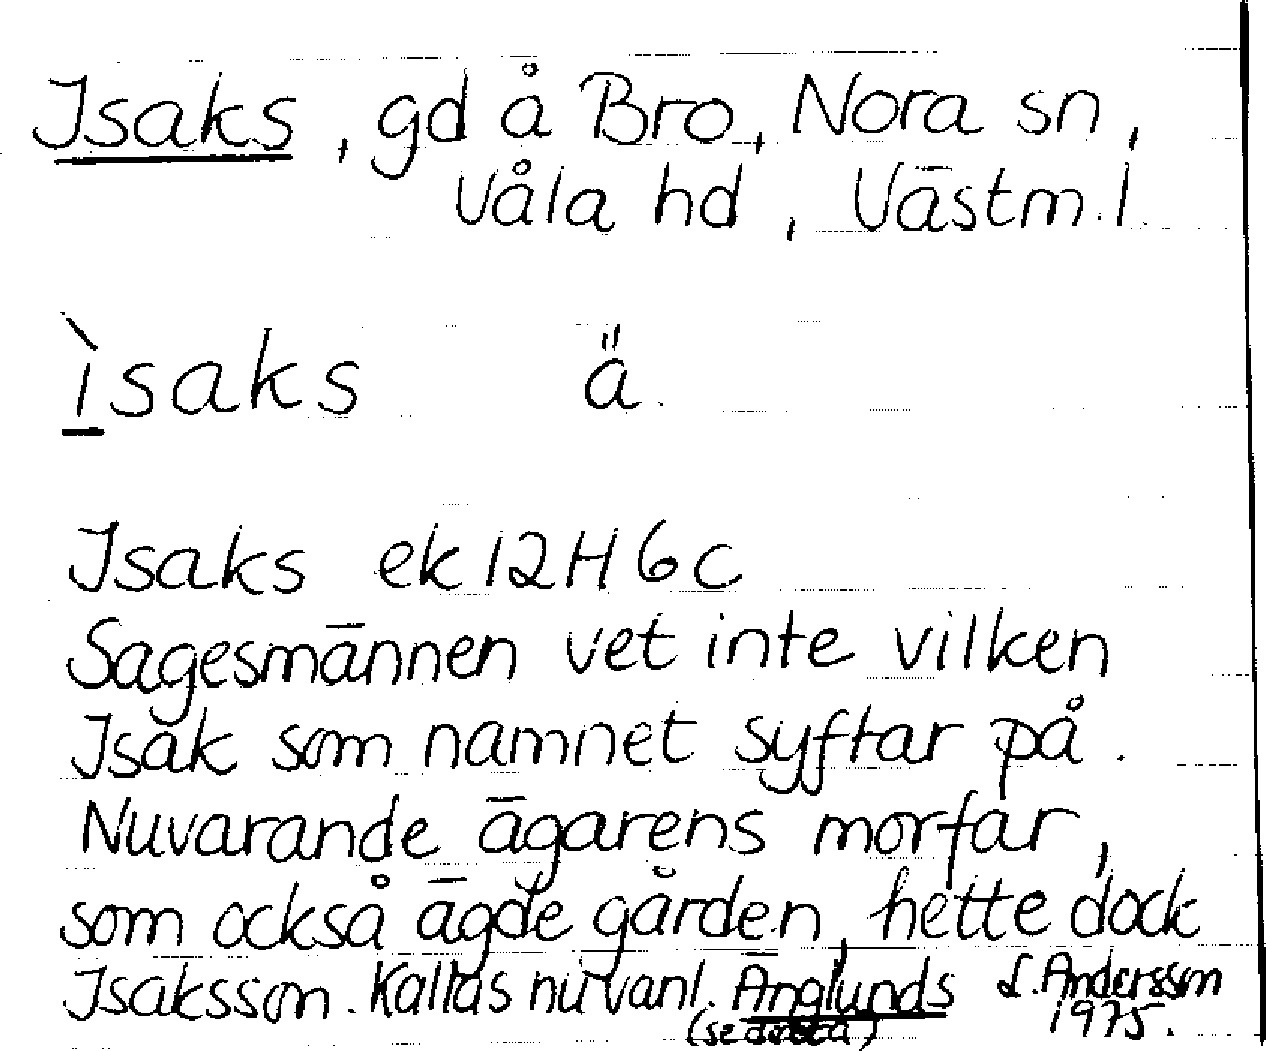 Isaks, gd å Bro, Nora sn,
Våla hd, Västm.l.
ìsaks ä.
Isaks ek 12H 6c
Sagesmännen vet inte vilken
Isak som namnet syftar på.
Nuvarande ägarens morfar,
som också ägde gården, hette dock
Isaksson. Kallas nu vanl. Änglunds L. Andersson
(se detta) 1975.